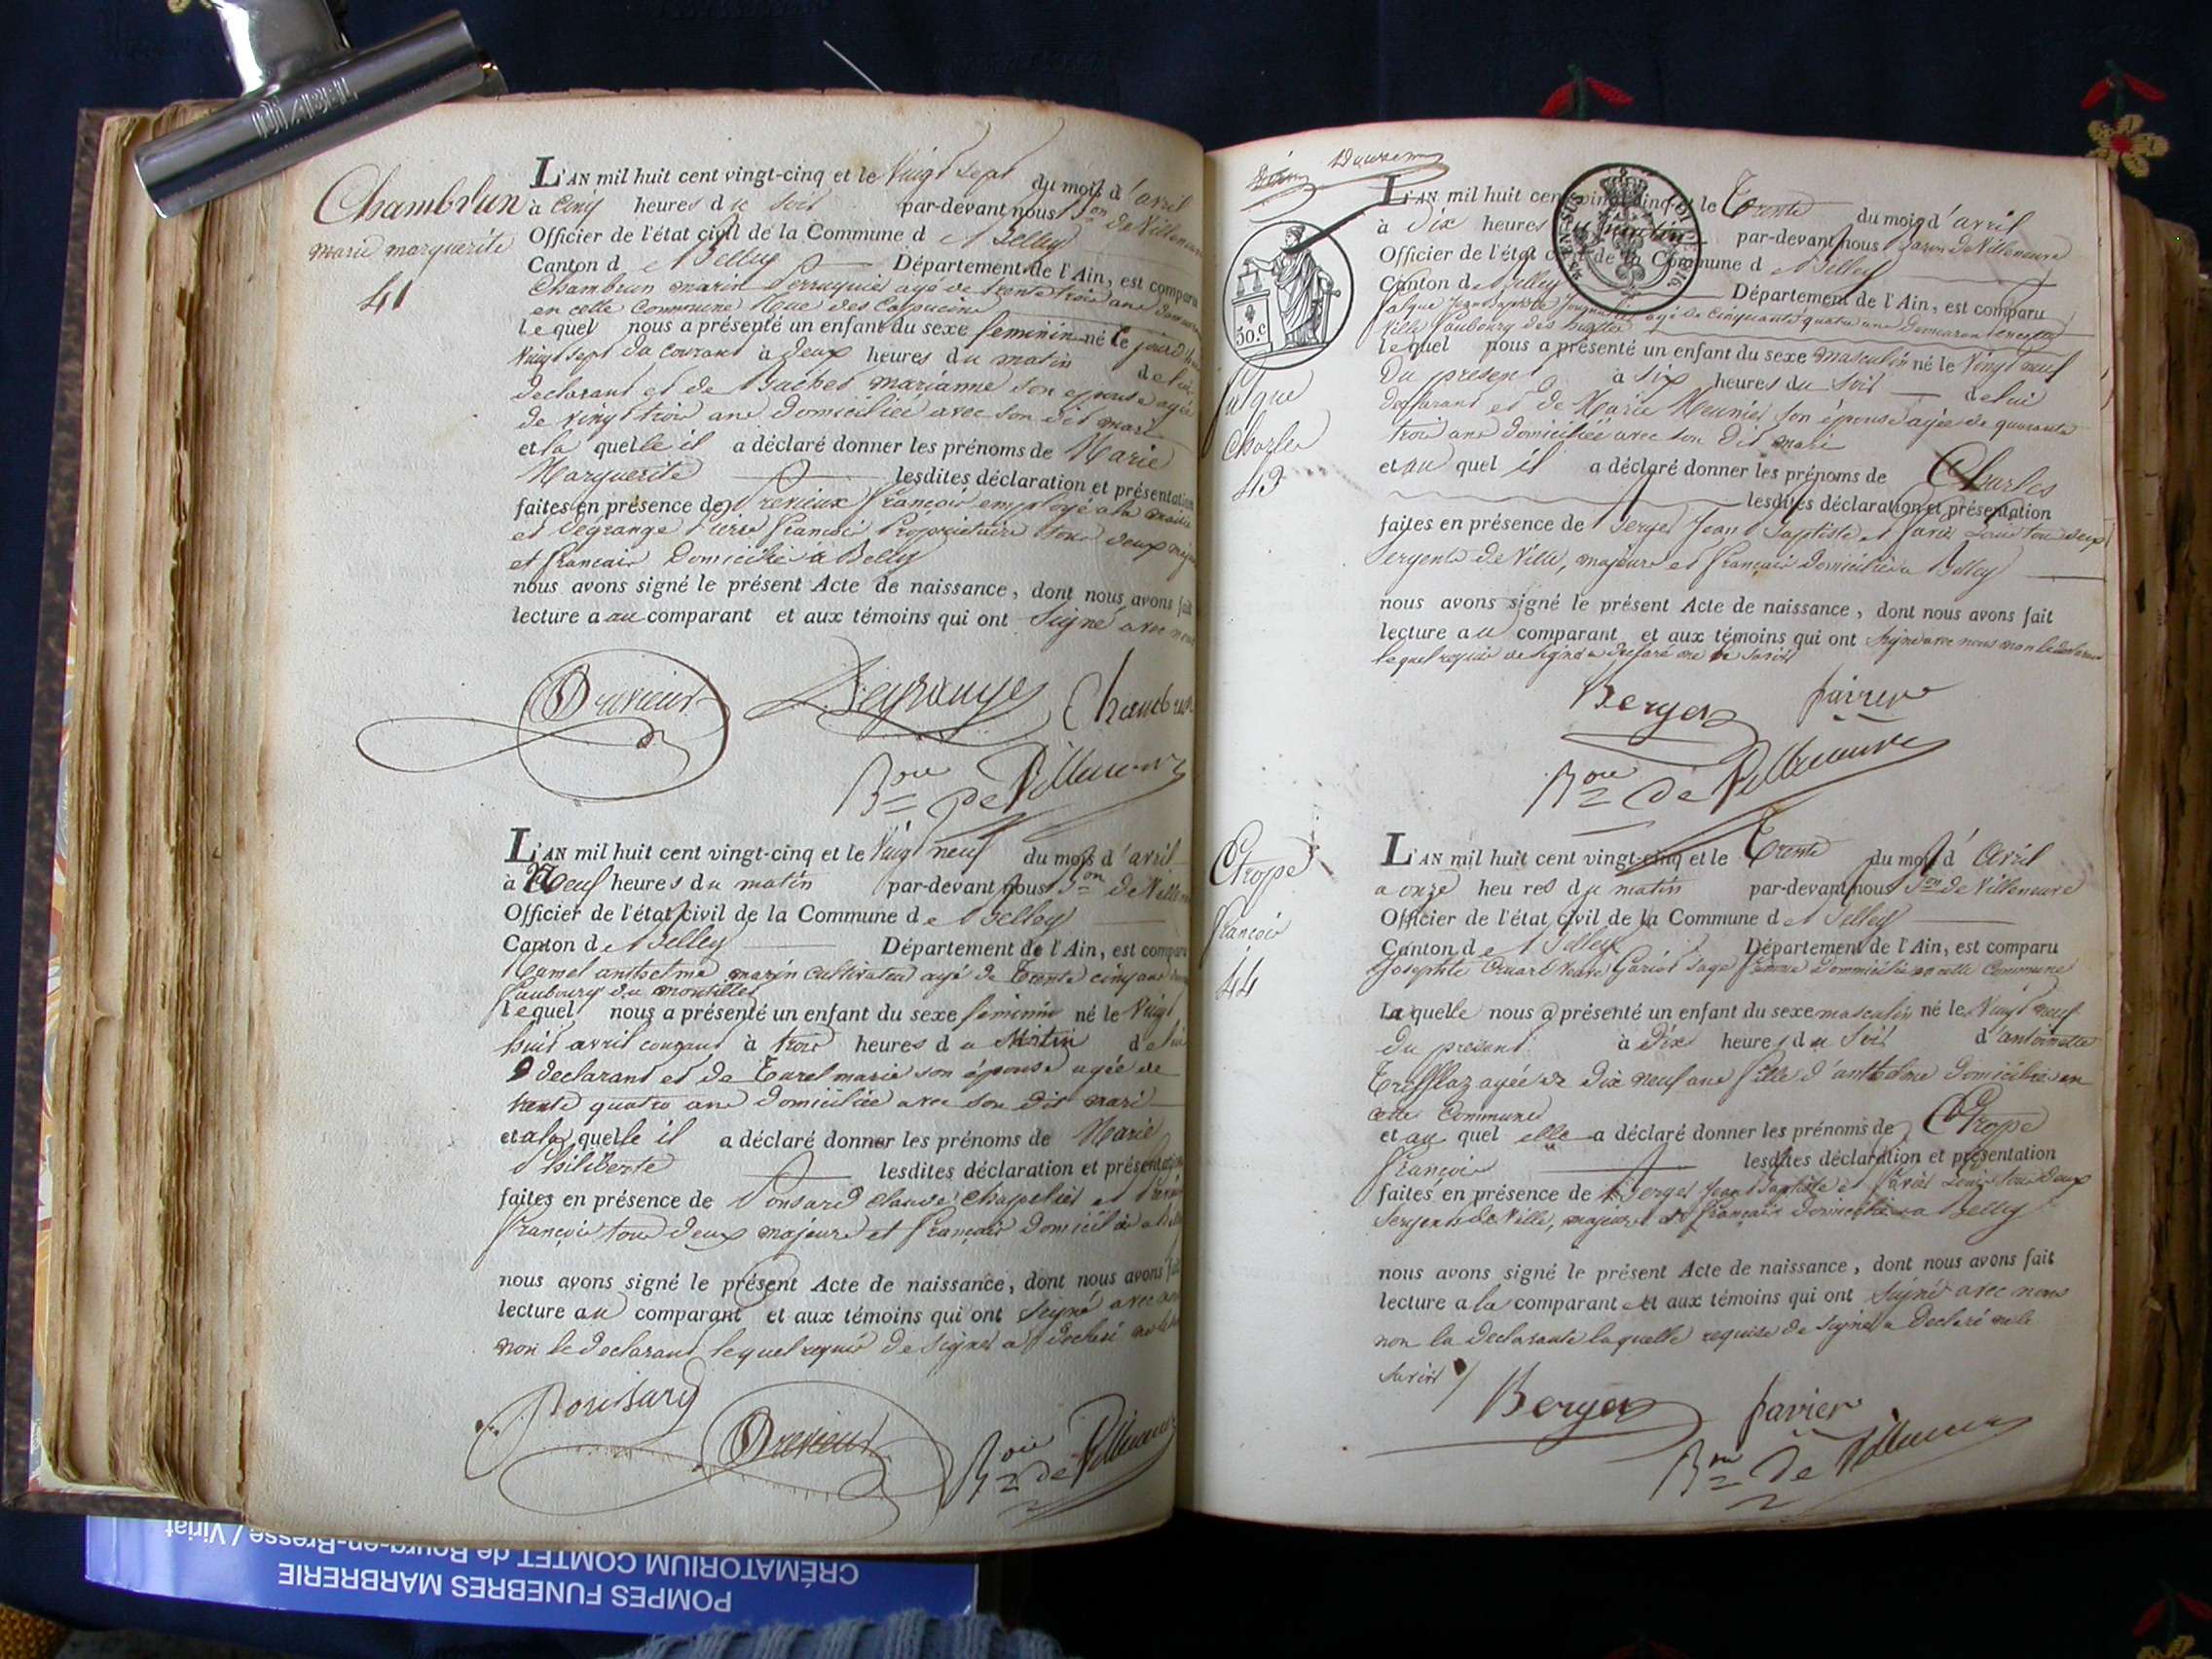 DIABEL
Chambrlun
marie marguerite
41
L'AN mil huit cent vingt-cinq et le Vingt sept du mois d'avril
à Cinq heures du soir par-devant nous Bon de Villeneuve
Officier de l'état civil de la Commune de Belley
Canton de Belley Département de l'Ain, est comparu
Chambrun marin Perruquier agé de trente trois ans
en cette Commune Rue des Capucins
lequel nous a présenté un enfant du sexe feminin né le jourd'hui
Vingt sept du courant à deux heures du matin de lui
declarant et de Bachet marianne son epouse agée
de vingt trois ans domiciliée avec son dit mari
et la quelle il a déclaré donner les prénoms de Marie
Marguerite lesdites déclaration et présentation
faites en présence de Prevoux françois employé a la mairie
et Degrange Pierre François Propriétaire tous deux majeurs
et français Domiciliés a Belley
nous avons signé le présent Acte de naissance, dont nous avons fait
lecture a au comparant et aux témoins qui ont Signé avec nous
Degrange Chambrun
Bon de Villeneuve
L'AN mil huit cent vingt-cinq et le Vingt neuf du mois d'avril
à Neuf heures du matin par-devant nous Bon de Villeneuve
Officier de l'état civil de la Commune de Belley
Canton de Belley Département de l'Ain, est comparu
Camel anthelme marin cultivateur agé de Trente cinq ans
faubourg du
lequel nous a présenté un enfant du sexe féminin né le Vingt
huit avril courant à trois heures du Matin de lui
declarant et de Turel marie son épouse agée de
trente quatre ans domiciliée avec son dit mari
et a la quelle il a déclaré donner les prénoms de Marie
Philiberte lesdites déclaration et présentation
faites en présence de Ponsard Claude Chapelier et
François tous deux majeurs et français domiciliés a Belley
nous avons signé le présent Acte de naissance, dont nous avons fait
lecture au comparant et aux témoins qui ont Signé avec nous
non le declarant lequel requis de signer a declaré
Ponsard
Bon de Villeneuve
50.c
falque
Charles
43
L'AN mil huit cent vingt-cinq et le Trente du mois d'avril
à dix heures du matin par-devant nous Baron de Villeneuve
Officier de l'état civil de la Commune de Belley
Canton de Belley Département de l'Ain, est comparu
falque Jean Baptiste Journalier agé de Cinquante quatre ans demeurant en cette
Ville faubourg des
lequel nous a présenté un enfant du sexe masculin né le Vingt neuf
Du present à six heures du soir de lui
declarant et de Marie Meunier son épouse agée de quarante
trois ans domiciliée avec son dit mari
et au quel il a déclaré donner les prénoms de Charles
lesdites déclaration et présentation
faites en présence de Berger Jean Baptiste et favier Louis tous deux
Sergents de Ville, majeurs et français domiciliés a Belley
nous avons signé le présent Acte de naissance, dont nous avons fait
lecture au comparant et aux témoins qui ont Signé avec nous non le declarant
lequel requis de signer a declaré ne le savoir
Berger favier
Bon de Villeneuve
Etrope
françois
44
L'AN mil huit cent vingt-cinq et le Trente du mois d'Avril
a onze heures du matin par-devant nous Bon de Villeneuve
Officier de l'état civil de la Commune de Belley
Canton de Belley Département de l'Ain, est comparu
Josephte veuve sage femme domiciliée en cette Commune
La quelle nous a présenté un enfant du sexe masculin né le Vingt neuf
du présent à dix heures du soir d'antoinette
Treffllaz agée de dix neuf ans fille d'anthelme domiciliée en
cette Commune
et au quel elle a déclaré donner les prénoms de Etrope
François lesdites déclaration et présentation
faites en présence de Berger Jean Baptiste et Favier Louis tous deux
Sergents de Ville, majeurs et français domiciliés a Belley
nous avons signé le présent Acte de naissance, dont nous avons fait
lecture a la comparant et aux témoins qui ont Signé avec nous
non la declarante laquelle requise de signer a declaré ne le
savoir
Berger favier
Bon de Villeneuve
CRÉMATORIUM COMTET de Bourg-en-Bresse / Viriat
POMPES FUNEBRES MARBRERIE